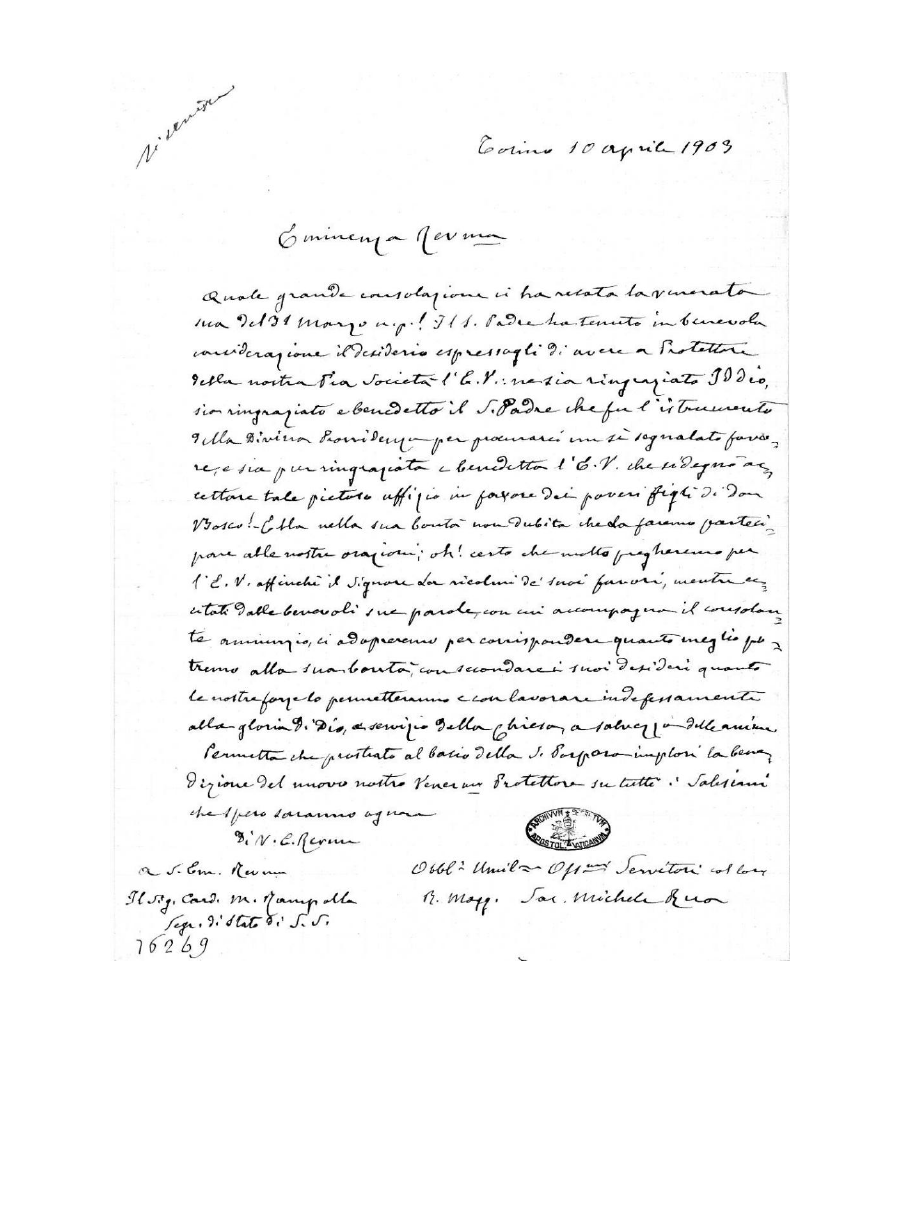 Torino 10 aprile 1903
Eminenza Revma
Quale grande consolazione ci ha recata la venerata
sua del 31 Marzo u.p.! Il S. Padre ha tenuto in benevola
considerazione il desiderio espressogli di avere a Protettore
della nostra Pia Società l'E.V.: ne sia ringraziato Iddio,
sia ringraziato e benedetto il S. Padre che fu l'istrumento
della Divina Provvidenza per procurarci un sì segnalato favo-
re, e sia pur ringraziata e benedetta l'E.V. che si degnò ac-
cettare tale pietoso uffizio in favore dei poveri figli di don
Bosco! - Ella nella sua bontà non dubita che La faremo parteci-
pare alle nostre orazioni; oh! certo che molto pregheremo per
l'E.V. affinchè il Signore La ricolmi de' suoi favori, mentre ec-
citati dalle benevoli sue parole, con cui accompagna il consolan-
te annunzio, ci adopreremo per corrispondere quanto meglio po-
tremo alla sua bontà, con secondare i suoi desideri quanto
le nostre forze lo permetteranno e con lavorare indefessamente
alla gloria di Dio, a servizio della Chiesa, a salvezza delle anime
Permetta che prostrato al bacio della S. Porpora implori la bene-
dizione del nuovo nostro Venermo Protettore su tutti i Salesiani
che spero saranno ognora
Di V. E. Revma
ARCHIVVM SECRETVM
APOSTOL. VATICANVM
A S. Em. Revma
Obbl. Umil. Servitori
Il Sig. Card. M. Rampolla
R. Magg. Sac. Michele Rua
Segr. di Stato di S. S.
16269